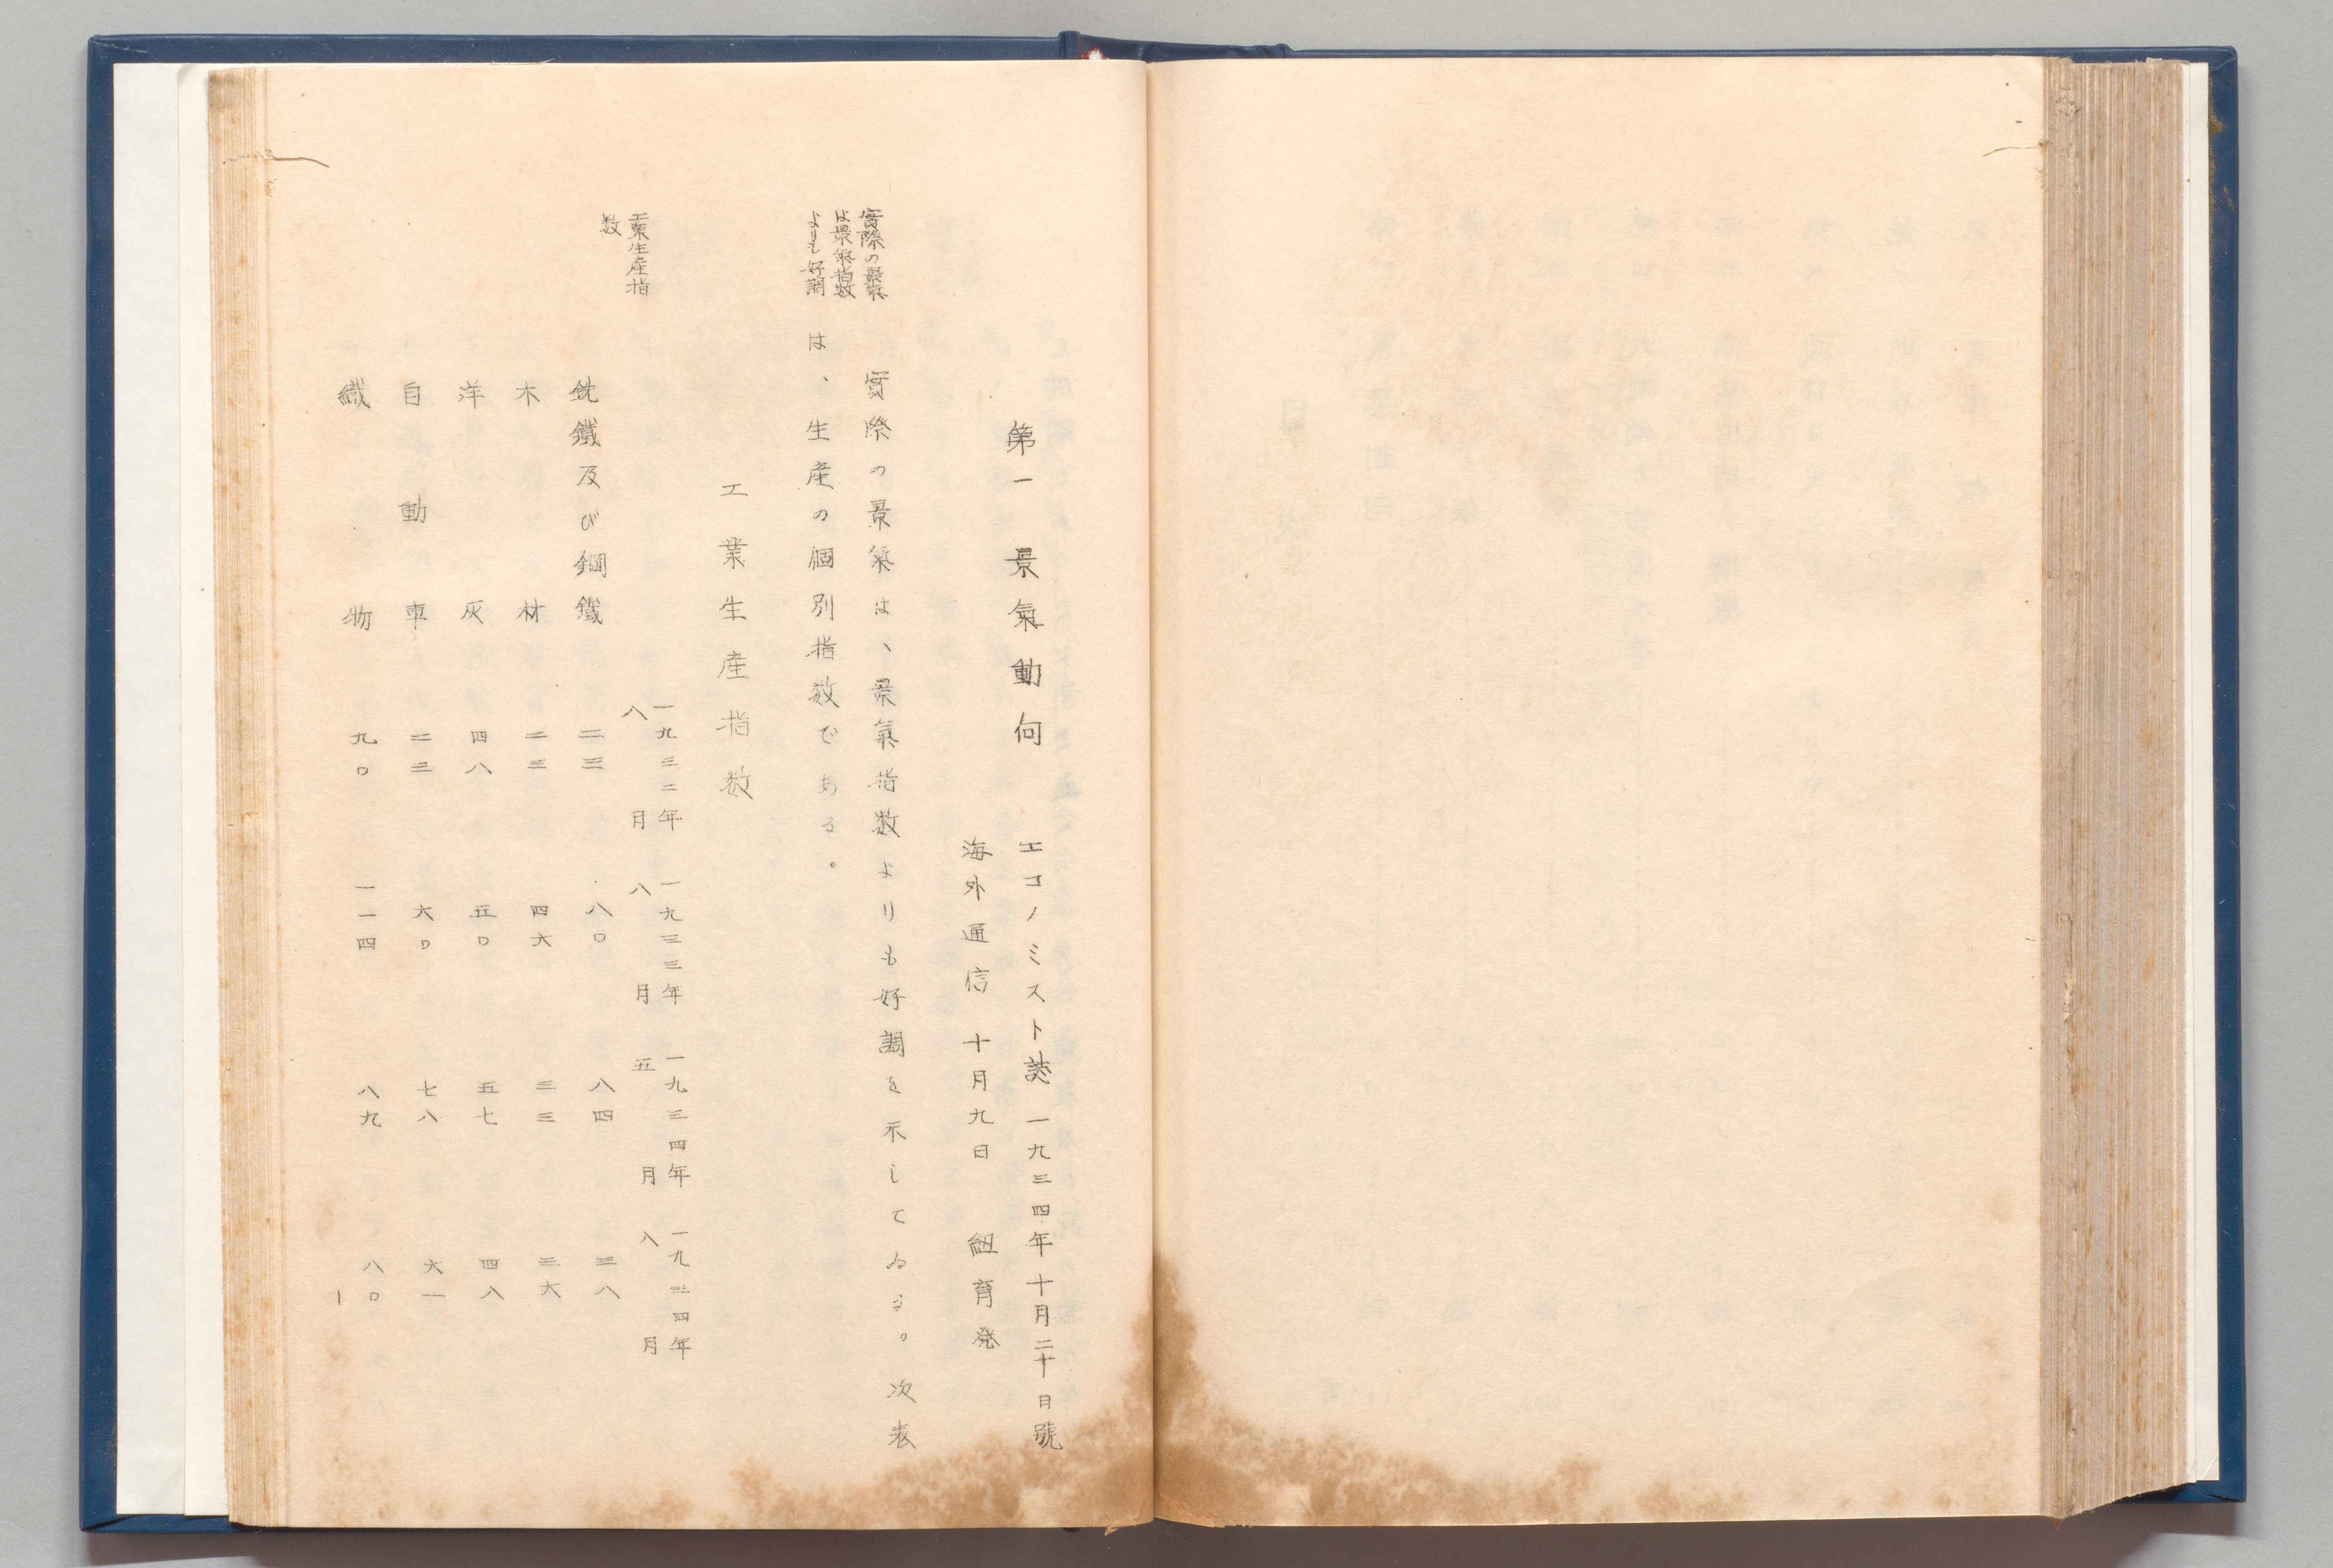 第一 景氣動向
エコノミスト誌 一九三四年十月二十日號
海外通信 十月九日 紐育発
實際の景氣
は景氣指数
よりも好調
實際の景氣は、景氣指数よりも好調を示してゐる。次表
は、生産の個別指数である。
工業生産指数
工業生産指
数
一九三二年八月 一九三三年八月 一九三四年五月 一九三四年八月
銑鐵及び鋼鐵 二三 八〇 八四 三八
木材 二三 四六 三三 三六
洋灰 四八 五〇 五七 四八
自動車 二三 六〇 七八 六一
織物 九〇 一一四 八九 八〇
1